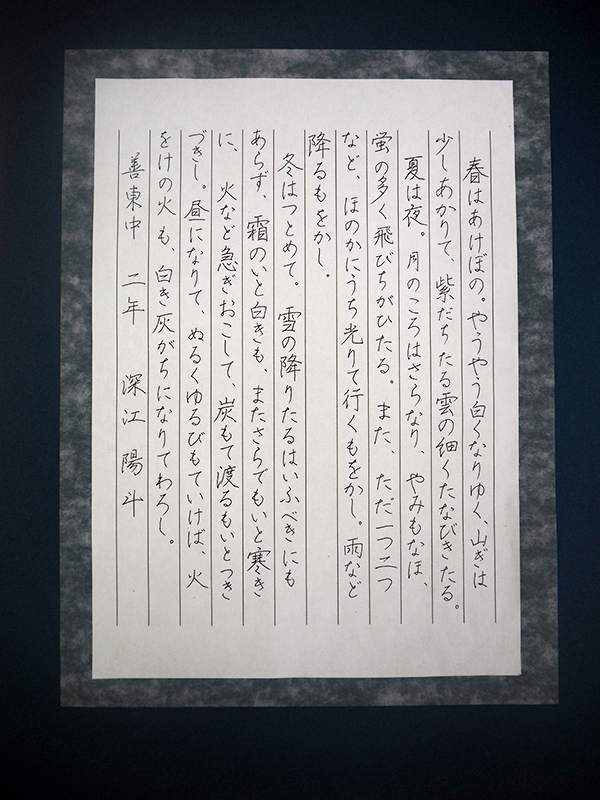 春はあけぼの。やうやう白くなりゆく、山ぎは
少しあかりて、紫だちたる雲の細くたなびきたる。
夏は夜。月のころはさらなり、やみもなほ、
蛍の多く飛びちがひたる。また、ただ一つ二つ
など、ほのかにうち光りて行くもをかし。雨など
降るもをかし。
冬はつとめて。雪の降りたるはいふべきにも
あらず、霜のいと白きも、またさらでもいと寒き
に、火など急ぎおこして、炭もて渡るもいとつき
づきし。昼になりて、ぬるくゆるびもていけば、火
をけの火も、白き灰がちになりてわろし。
善東中 二年 深江 陽斗